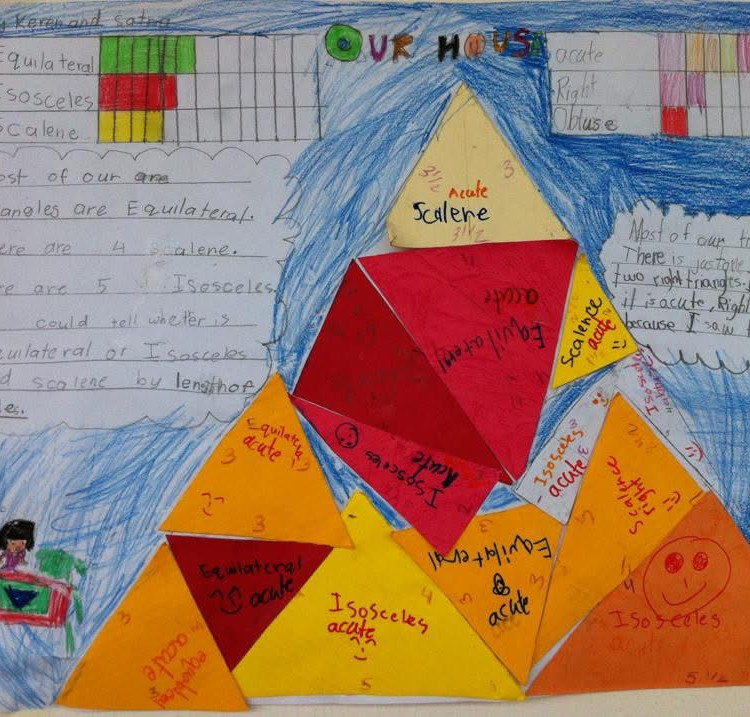 Keren and
OUR HOUS
Equilateral
Isosceles
Scalene
acute
Right
Obtuse
ost of our are
angles are Equilateral.
ere are 4 scalene.
re are 5 Isosceles
could tell whether is
quilateral or Isosceles
d scalene by length of
es.
Most of our t
There is just one
two right triangles.
if is acute, Right
because I saw
3 1/2
3
Acute
Scalene
3 1/2
acute
Equilateral
Scalence
acute
Isosceles
Acute
Isosceles
acute
Isosceles
Equilatera
acute
3
3
3
Scalence
right
Equilateral
acute
Equilateral
acute
3
Isosceles
acute
4
5
Isosceles
acute
5 1/2
3
equilateral
acute
3